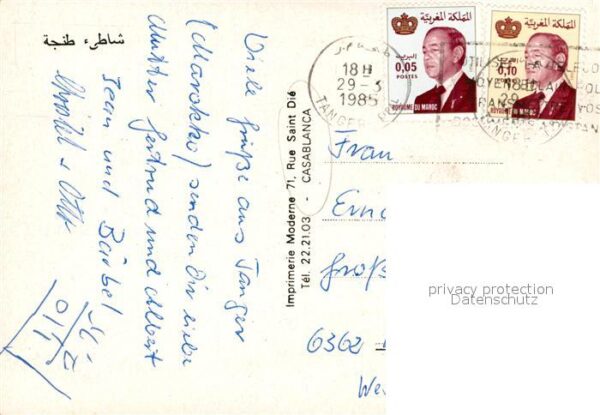 شاطىء طنجة
Viele Grüße aus Tanger
(Marokko) senden Dir liebe
Mutter Gertrud und Albert
Jean und Bärbel
Imprimerie Moderne 71, Rue Saint Dié
Tél. 22.21.03 - CASABLANCA
المملكة المغربية
البريد
0,05
POSTES
ROYAUME DU MAROC
المملكة المغربية
0,10
ROYAUME DU MAROC
18H
29-3
1985
TANGER
18H
29
Frau
6362
privacy protection
Datenschutz